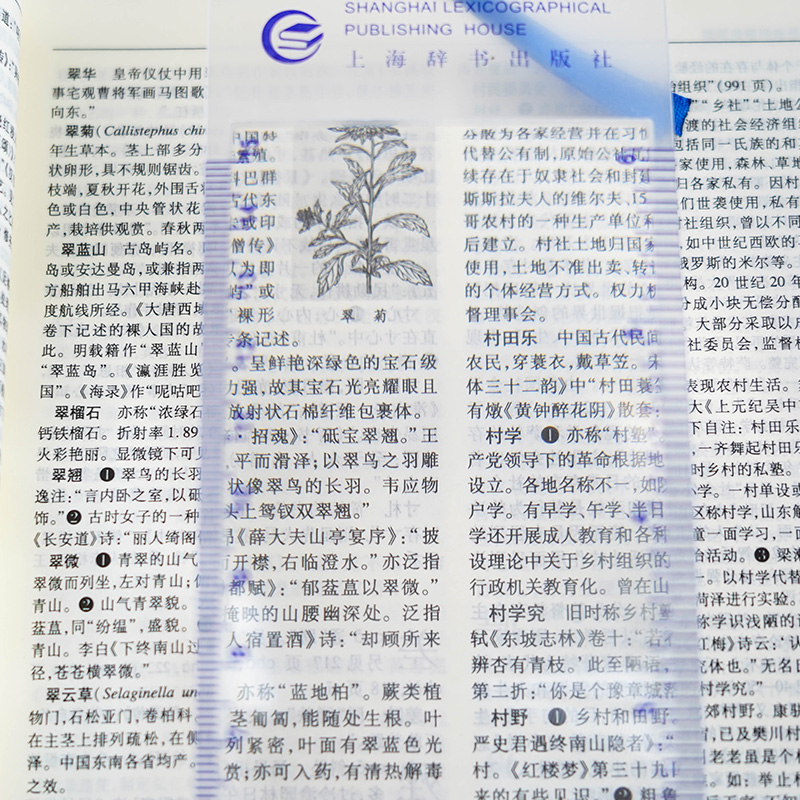 SHANGHAI LEXICOGRAPHICAL
PUBLISHING HOUSE
上海辞书出版社
翠华 皇帝仪仗中用
事宅观曹将军画马图歌
向东。”
翠菊(Callistephus chin
年生草本。茎上部多分
状卵形,具不规则锯齿。
枝端,夏秋开花,外围舌状
色或白色,中央管状花
产,栽培供观赏。春秋两
翠蓝山 古岛屿名。
岛或安达曼岛,或兼指两
方船舶出马六甲海峡赴
度航线所经。《大唐西域
卷下记述的裸人国的故
此。明载籍作“翠蓝山”
“翠蓝岛”。《瀛涯胜览
国”。《海录》作“呢咕吧
翠榴石 亦称“浓绿石
钙铁榴石。折射率1.89
火彩艳丽。显微镜下可见
翠翘 ❶翠鸟的长羽
逸注:“言内卧之室,以砥
饰。”❷古时女子的一种
《长安道》诗:“丽人绮阁
翠微 ❶青翠的山气
翠微而列坐,左对青山;
青山。❷山气青翠貌。
蒀蒀,同“纷缊”,盛貌。
青山。李白《下终南山过
径,苍苍横翠微。”
翠云草(Selaginella un
物门,石松亚门,卷柏科。
在主茎上排列疏松,在侧
泽。中国东南各省均产。
之效。
中国特
繁殖。
科巴群
古代东
或印
僧传》
以为即
屿”或
裸形
专条记述。
翠菊
。呈鲜艳深绿色的宝石级
力强,故其宝石光亮耀眼且
放射状石棉纤维包裹体。
·招魂》:“砥宝翠翘。”王
,平而滑泽;以翠鸟之羽雕
状像翠鸟的长羽。韦应物
头上鸳钗双翠翘。”
《薛大夫山亭宴序》:“披
而开襟,右临澄水。”亦泛指
都赋》:“郁蒀蒀以翠微。”
掩映的山腰幽深处。泛指
人宿置酒》诗:“却顾所来
亦称“蓝地柏”。蕨类植
茎匍匐,能随处生根。叶
列紧密,叶面有翠蓝色光
赏;亦可入药,有清热解毒
分散为各家经营并在习惯
代替公有制,原始公社瓦
续存在于奴隶社会和封建
斯斯拉夫人的维尔夫、15
哥农村的一种生产单位和
后建立。村社土地归国家
使用,土地不准出卖、转让
的个体经营方式。权力机
督理事会。
村田乐 中国古代民间
农民,穿蓑衣,戴草笠。宋
体三十二韵》中“村田蓑
有燉《黄钟醉花阴》散套:
村学 ❶亦称“村塾”。
产党领导下的革命根据地
设立。各地名称不一,如
户学。有早学、午学、半日
学还开展成人教育和各种
设理论中关于乡村组织的
行政机关教育化。曾在山
村学究 旧时称乡村塾
轼《东坡志林》卷十:“若
辨杏有青枝。’此至陋语,
第二折:“你是个豫章城
村野 ❶乡村和田野。
严史君遇终南山隐者》:“
村。《红楼梦》第三十九回
来的有些见识。”❷粗鲁
治组织”(991页)。
”“乡社”“土地公
渡的社会经济组
包括同一氏族的和
家使用,森林、草地
归各家私有。因村
们世袭使用,私有
村社组织,曾以不同
,如中世纪西欧的马
俄罗斯的米尔等。
构。20世纪20年
分成小块无偿分配
大部分采取以户
社委员会,监督机
表现农村生活。
大《上元纪吴中
下自注:村田乐
,一齐舞起村田乐
时乡村的私塾。
小学。一村单设或
区称村学,山东解
童一面学习,一面
治活动。❸梁漱
。以村学代替
菏泽进行实验。
称学识浅陋的读
红梅》诗云:‘认
究体也。”无名氏
村学究。”
郊村野。康骈
,已及樊川村
老老虽是个村
。如:举止村